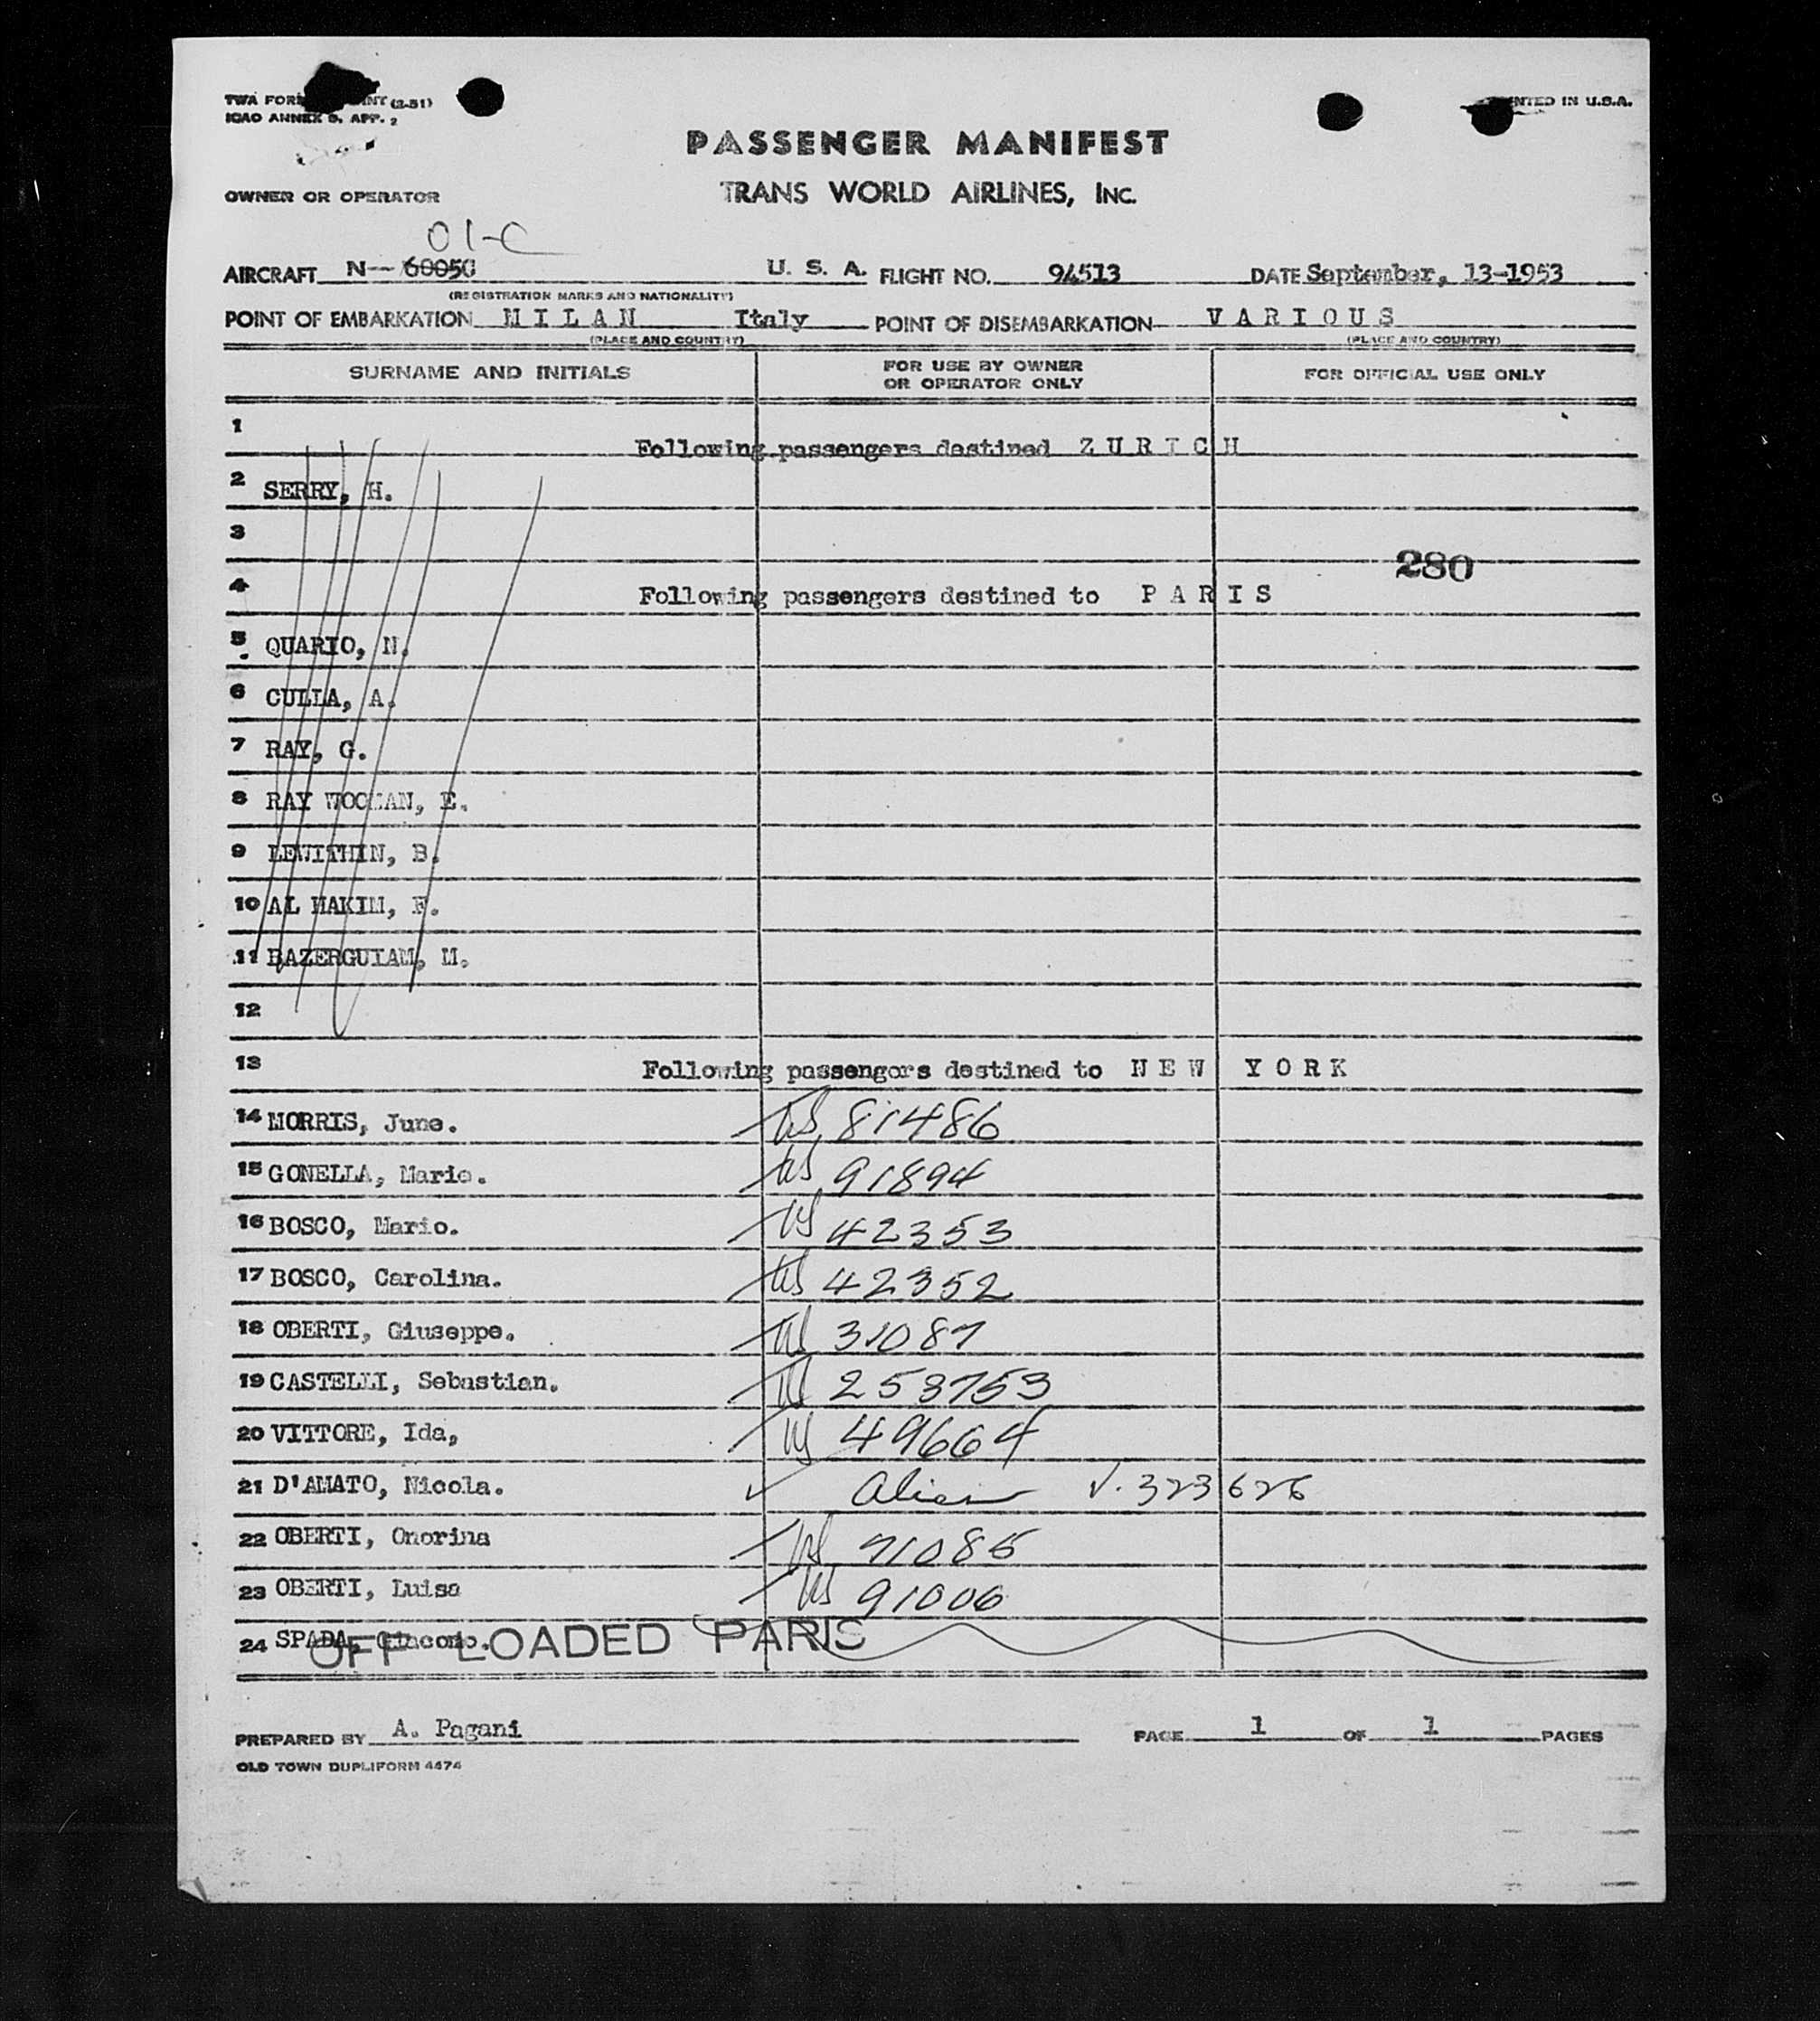 TWA FORM (2-51)
ICAO ANNEX 9, APP. 2
PRINTED IN U.S.A.
PASSENGER MANIFEST
OWNER OR OPERATOR TRANS WORLD AIRLINES, INC.
01-C
AIRCRAFT N-- 6005C U. S. A. FLIGHT NO. 94513 DATE September, 13-1953
(REGISTRATION MARKS AND NATIONALITY)
POINT OF EMBARKATION M I L A N Italy POINT OF DISEMBARKATION V A R I O U S
(PLACE AND COUNTRY) (PLACE AND COUNTRY)
SURNAME AND INITIALS FOR USE BY OWNER OR OPERATOR ONLY FOR OFFICIAL USE ONLY
1 Following passengers destined Z U R I C H
2 SERRY, H.
3
280
4 Following passengers destined to P A R I S
5 QUARIO, N.
6 CULLA, A.
7 RAY, G.
8 RAY WOOMAN, E.
9 LEWITHIN, B.
10 AL HAKIM, F.
11 BAZERGUIAM, M.
12
13 Following passengers destined to N E W Y O R K
14 MORRIS, June. US 81486
15 GONELLA, Mario. US 91894
16 BOSCO, Mario. US 42353
17 BOSCO, Carolina. US 42352
18 OBERTI, Giuseppe. US 31087
19 CASTELLI, Sebastian. US 258753
20 VITTORE, Ida, US 49664
21 D'AMATO, Nicola. ✓ Alien V. 323626
22 OBERTI, Onorina US 71085
23 OBERTI, Luisa US 91006
24 SPADA, Giacomo. OFF LOADED PARIS
PREPARED BY A. Pagani PAGE 1 OF 1 PAGES
OLD TOWN DUPLIFORM 4474